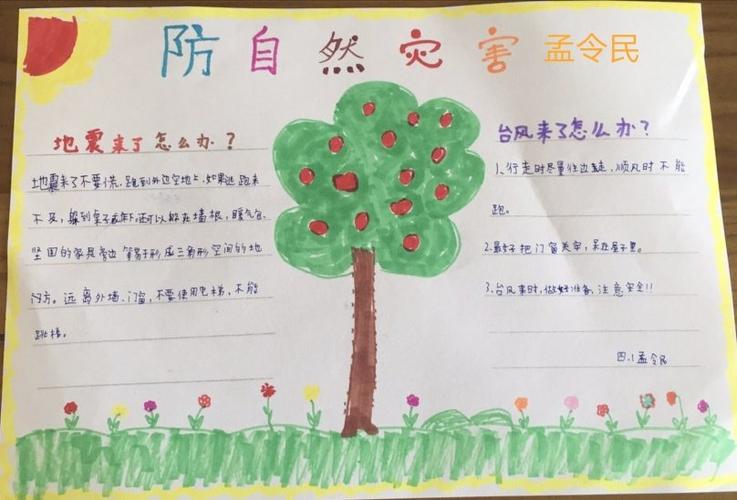 防自然灾害 孟令民
地震来了怎么办？
地震来了不要慌，跑到外边空地上，如果逃跑来
不及，躲到桌子底下，还可以躲在墙根，暖气包，
坚固的家具旁边 等易于形成三角形空间的地
方。远离外墙、门窗，不要使用电梯，不能
跳楼。
台风来了怎么办？
1、行走时尽量往边走，顺风时不能
跑。
2、最好把门窗关牢，呆在屋子里。
3、台风来时，做好准备，注意安全!!
四、1 孟令民